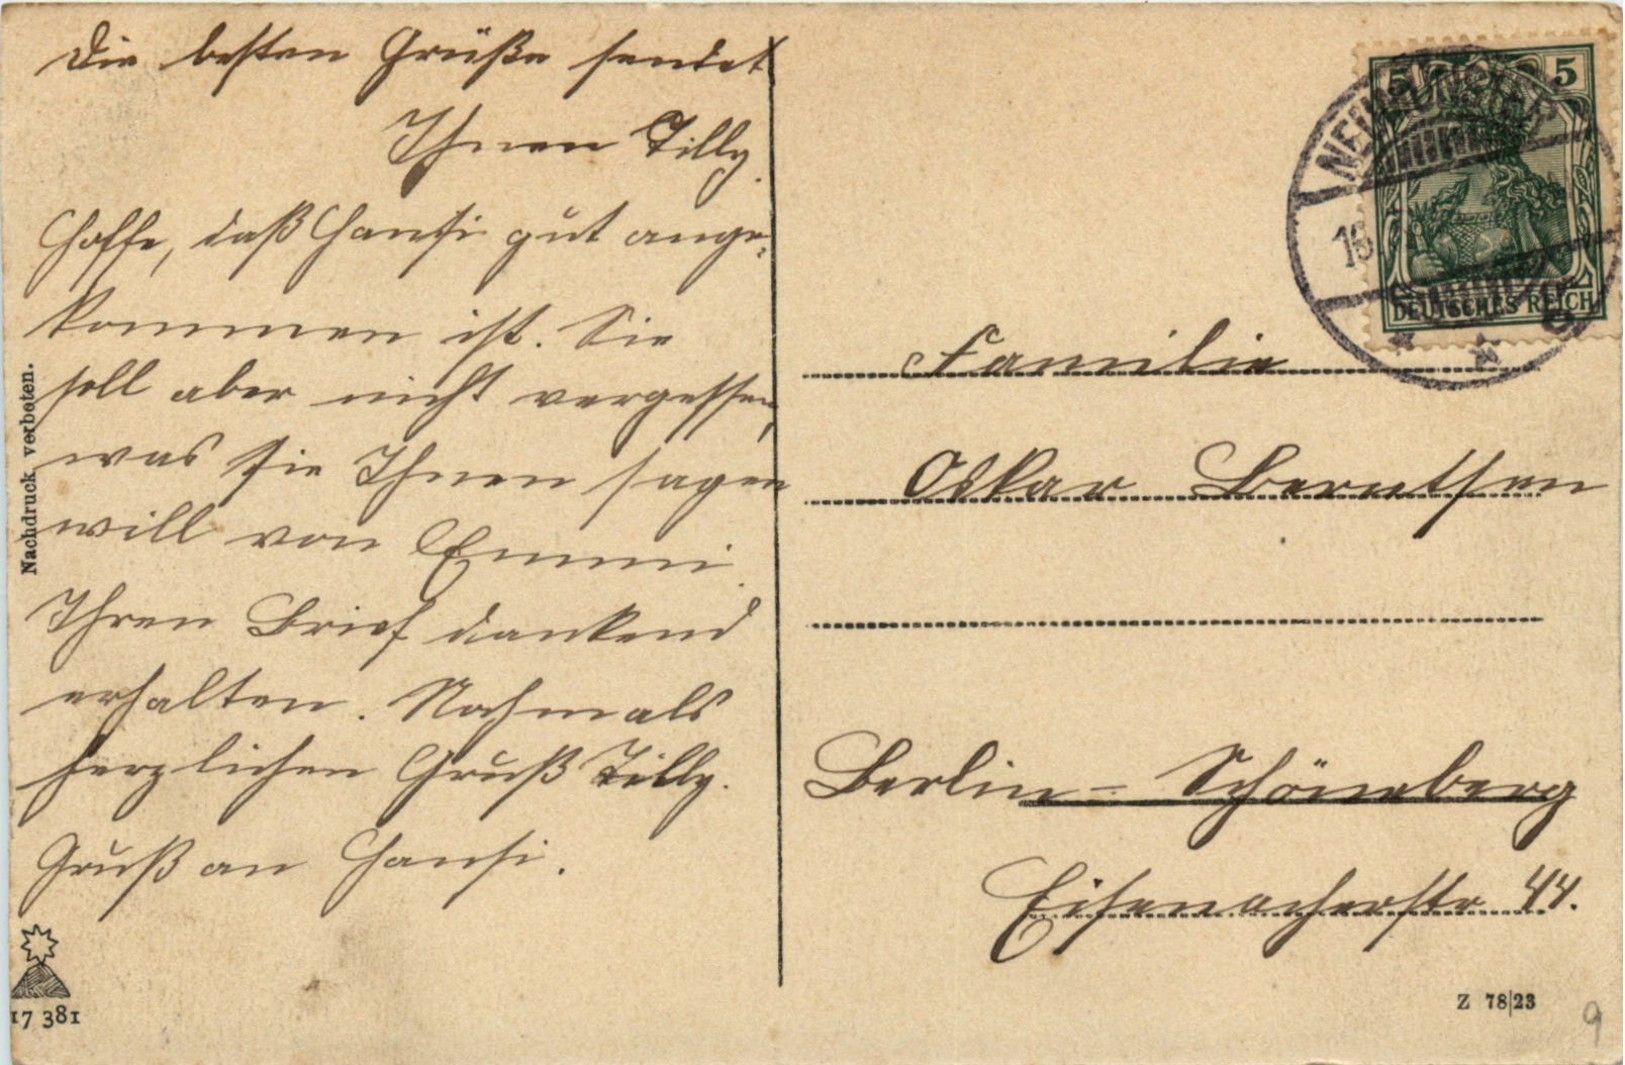 Die besten Grüße sendet
Ihnen Tilly.
Hoffe, daß Hansi gut ange-
kommen ist. Sie
soll aber nicht vergessen,
was sie Ihnen sagen
will von Emmi.
Ihren Brief dankend
erhalten. Nochmals
herzlichen Gruß Tilly.
Gruß an Hansi.
Nachdruck verboten.
17 381
5 5
DEUTSCHES REICH
Familie
Oskar Berntsen
Berlin-Schöneberg
Eisenacherstr 44.
Z 78/23
9